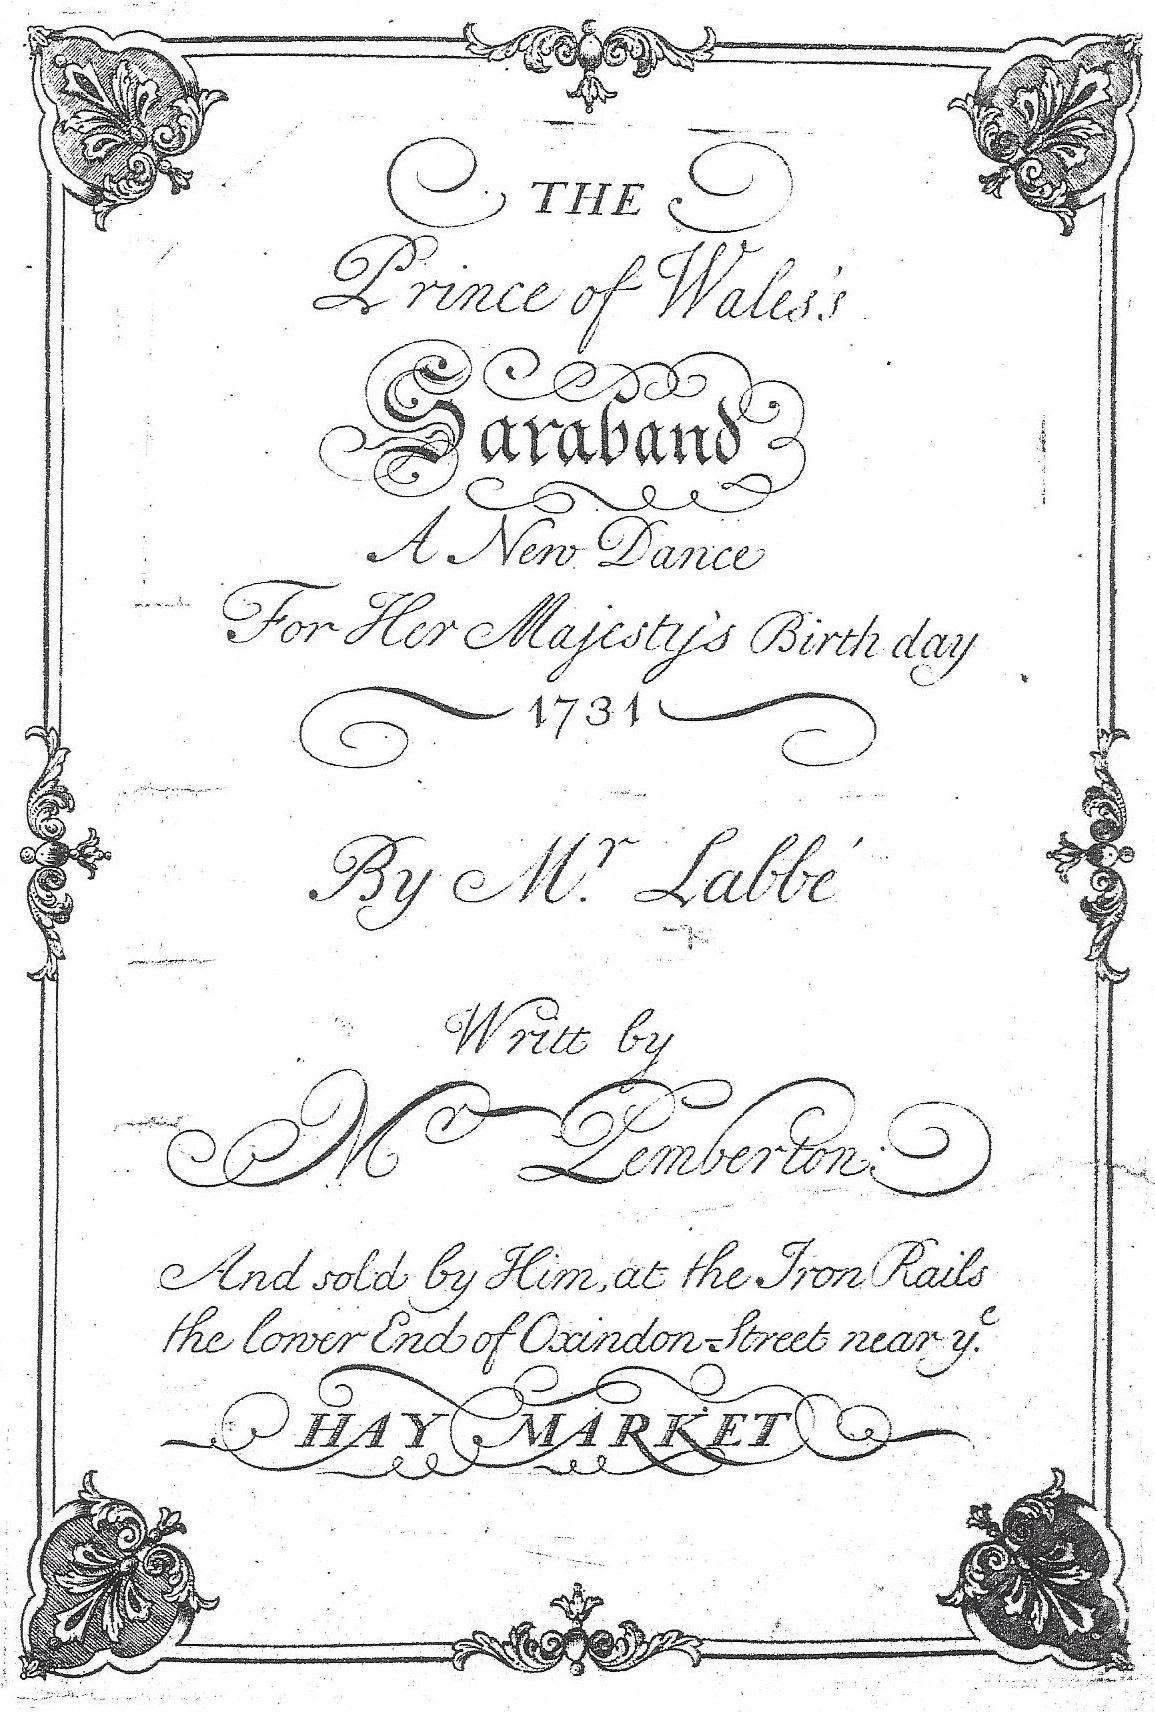 THE
Prince of Wales's
Saraband
A New Dance
For Her Majesty's Birth day
1731
By Mr. Labbé
Writt by
Mr Pemberton.
And sold by Him, at the Iron Rails
the lower End of Oxindon-Street near ye.
HAY MARKET